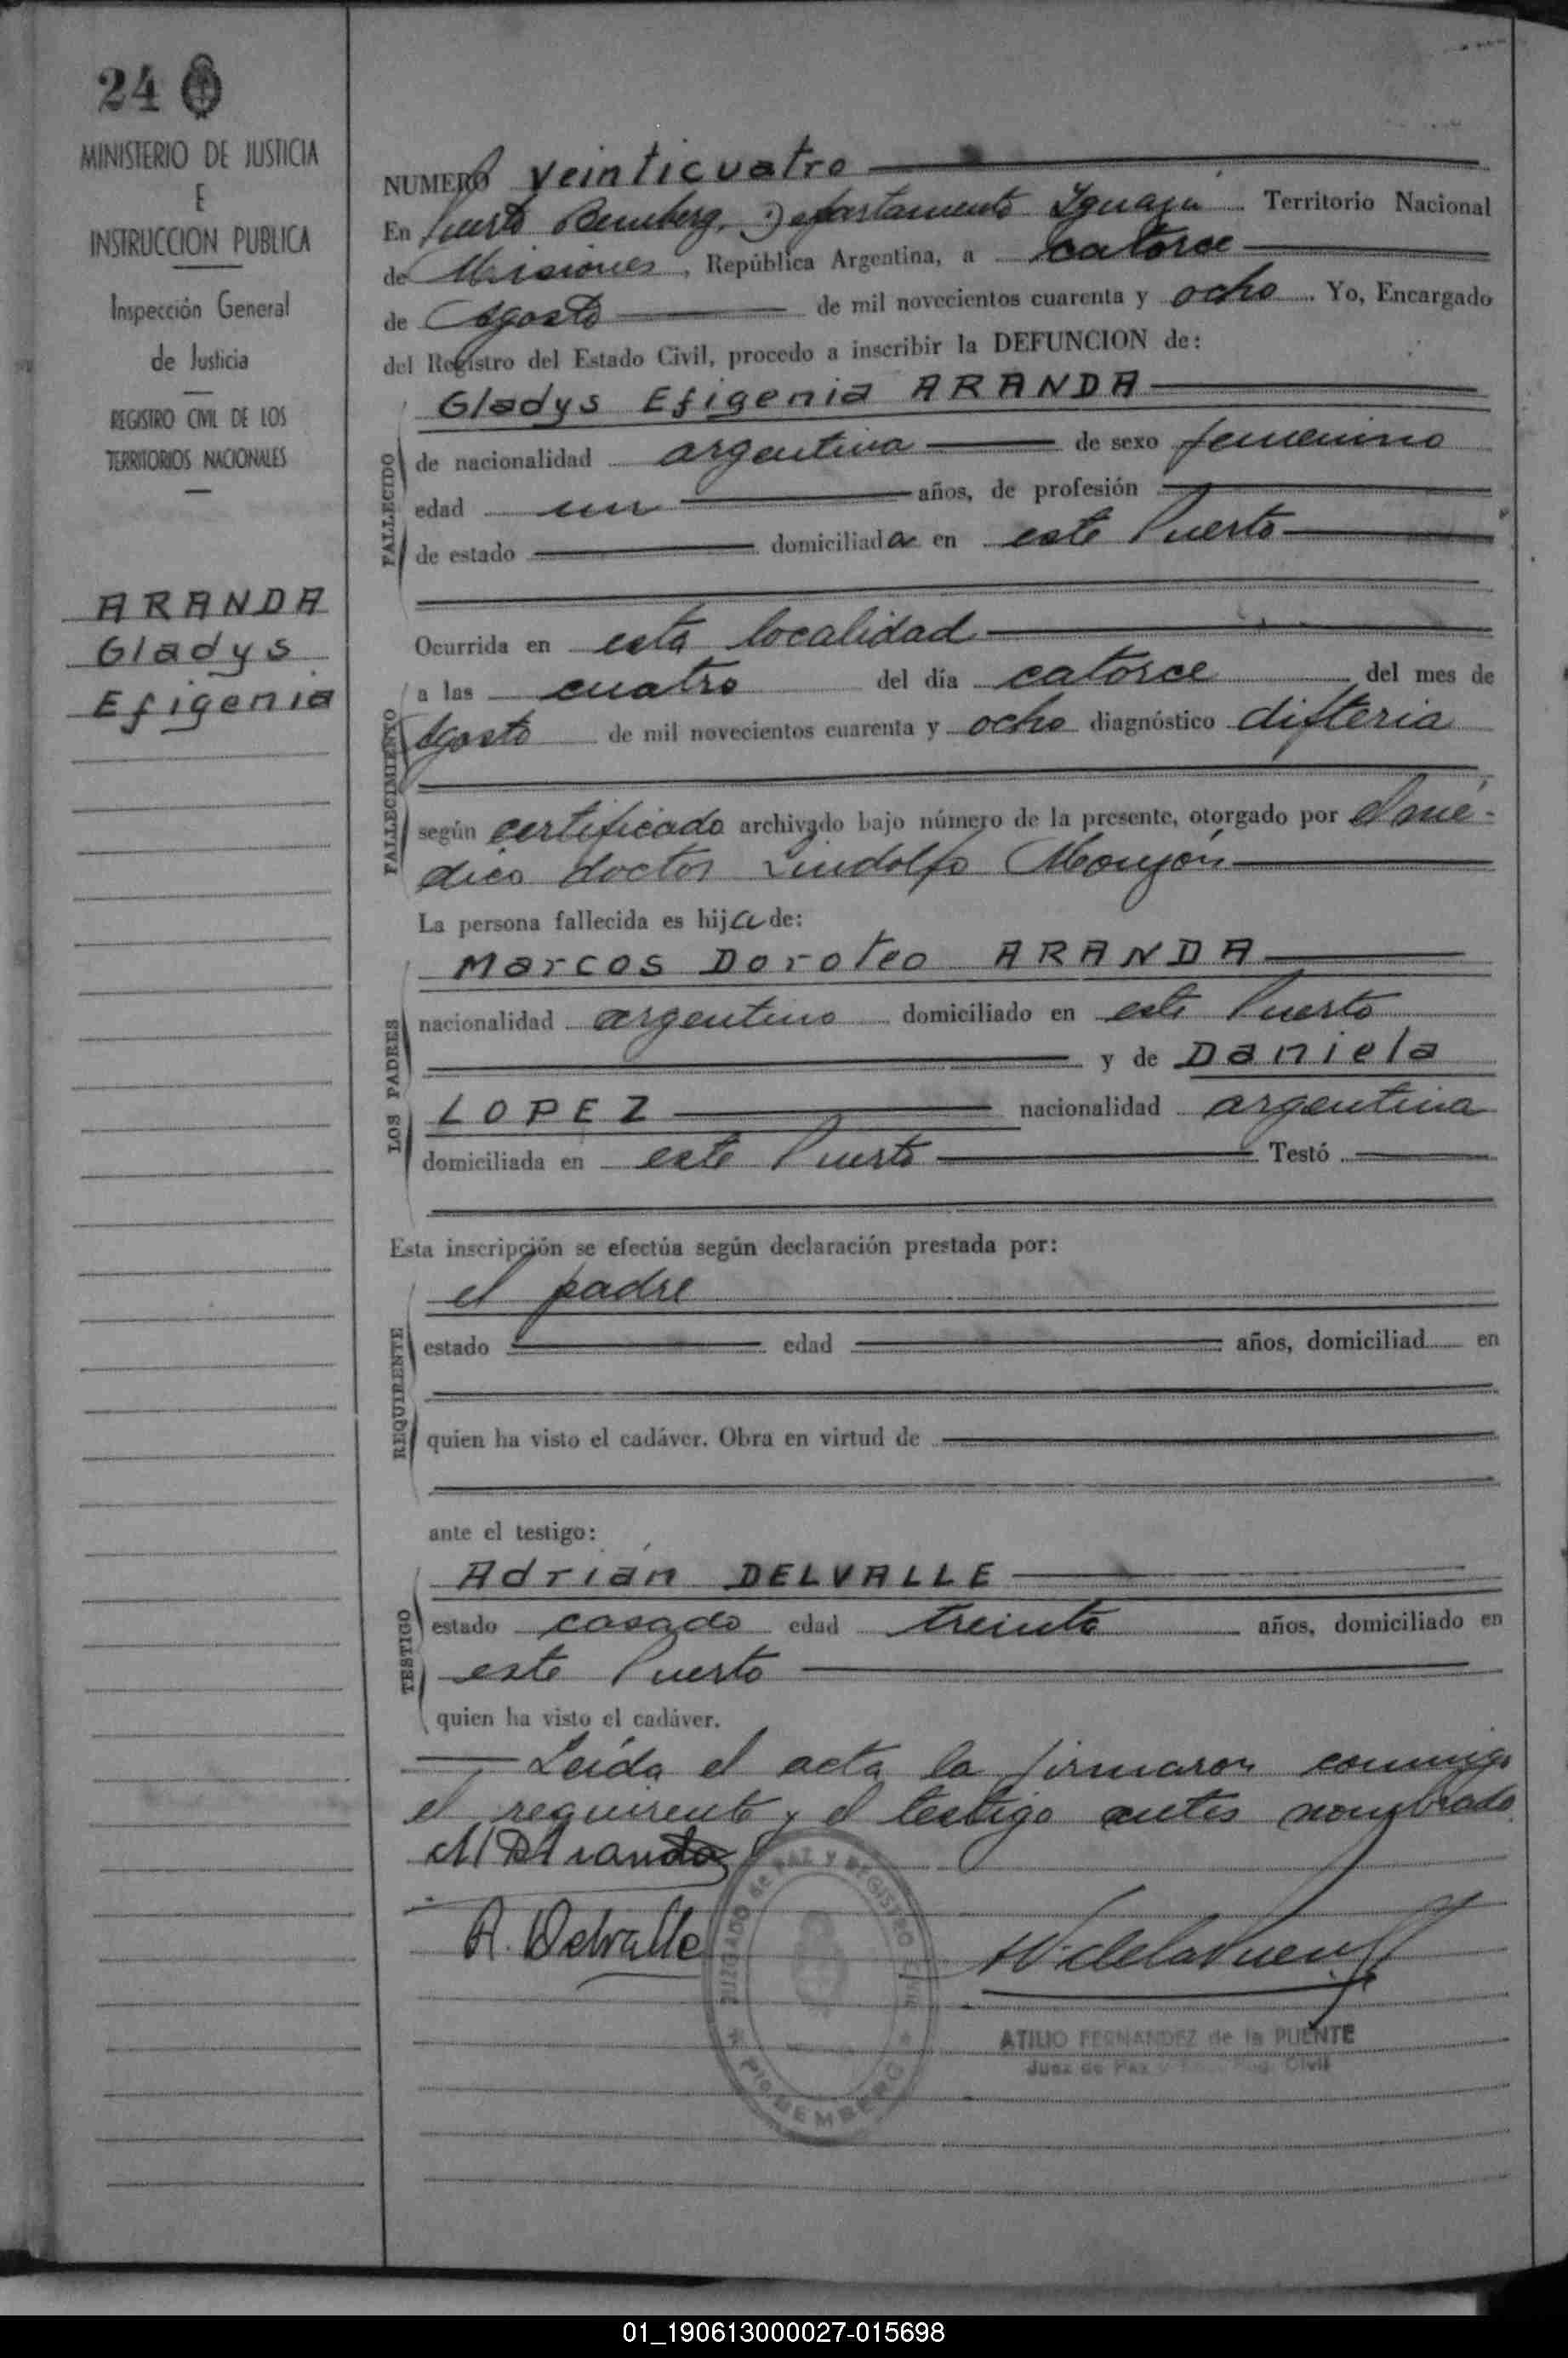 24
MINISTERIO DE JUSTICIA
E
INSTRUCCION PUBLICA
Inspección General
de Justicia
REGISTRO CIVIL DE LOS
TERRITORIOS NACIONALES
ARANDA
Gladys
Efigenia
NUMERO veinticuatro
En Puerto Bemberg, Departamento Iguazú Territorio Nacional
de Misiones, República Argentina, a catorce
de Agosto de mil novecientos cuarenta y ocho. Yo, Encargado
del Registro del Estado Civil, procedo a inscribir la DEFUNCION de:
FALLECIDO
Gladys Efigenia ARANDA
de nacionalidad argentina de sexo femenino
edad un años, de profesión
de estado domiciliada en este Puerto
FALLECIMIENTO
Ocurrida en esta localidad
a las cuatro del día catorce del mes de
Agosto de mil novecientos cuarenta y ocho diagnóstico difteria
según certificado archivado bajo número de la presente, otorgado por el mé-
dico doctor Lindolfo Monjón
La persona fallecida es hija de:
LOS PADRES
Marcos Doroteo ARANDA
nacionalidad argentino domiciliado en este Puerto
y de Daniela
LOPEZ nacionalidad argentina
domiciliada en este Puerto Testó
Esta inscripción se efectúa según declaración prestada por:
REQUIRENTE
el padre
estado edad años, domiciliad en
quien ha visto el cadáver. Obra en virtud de
ante el testigo:
TESTIGO
Adrián DELVALLE
estado casado edad treinta años, domiciliado en
este Puerto
quien ha visto el cadáver.
Leída el acta la firmaron conmigo
el requirente y el testigo antes nombrado.
M D Aranda
A. Delvalle
JUZGADO de PAZ y REGISTRO CIVIL
Pto. BEMBERG
ATILIO FERNANDEZ de la PUENTE
Juez de Paz y Reg. Civil
01_190613000027-015698